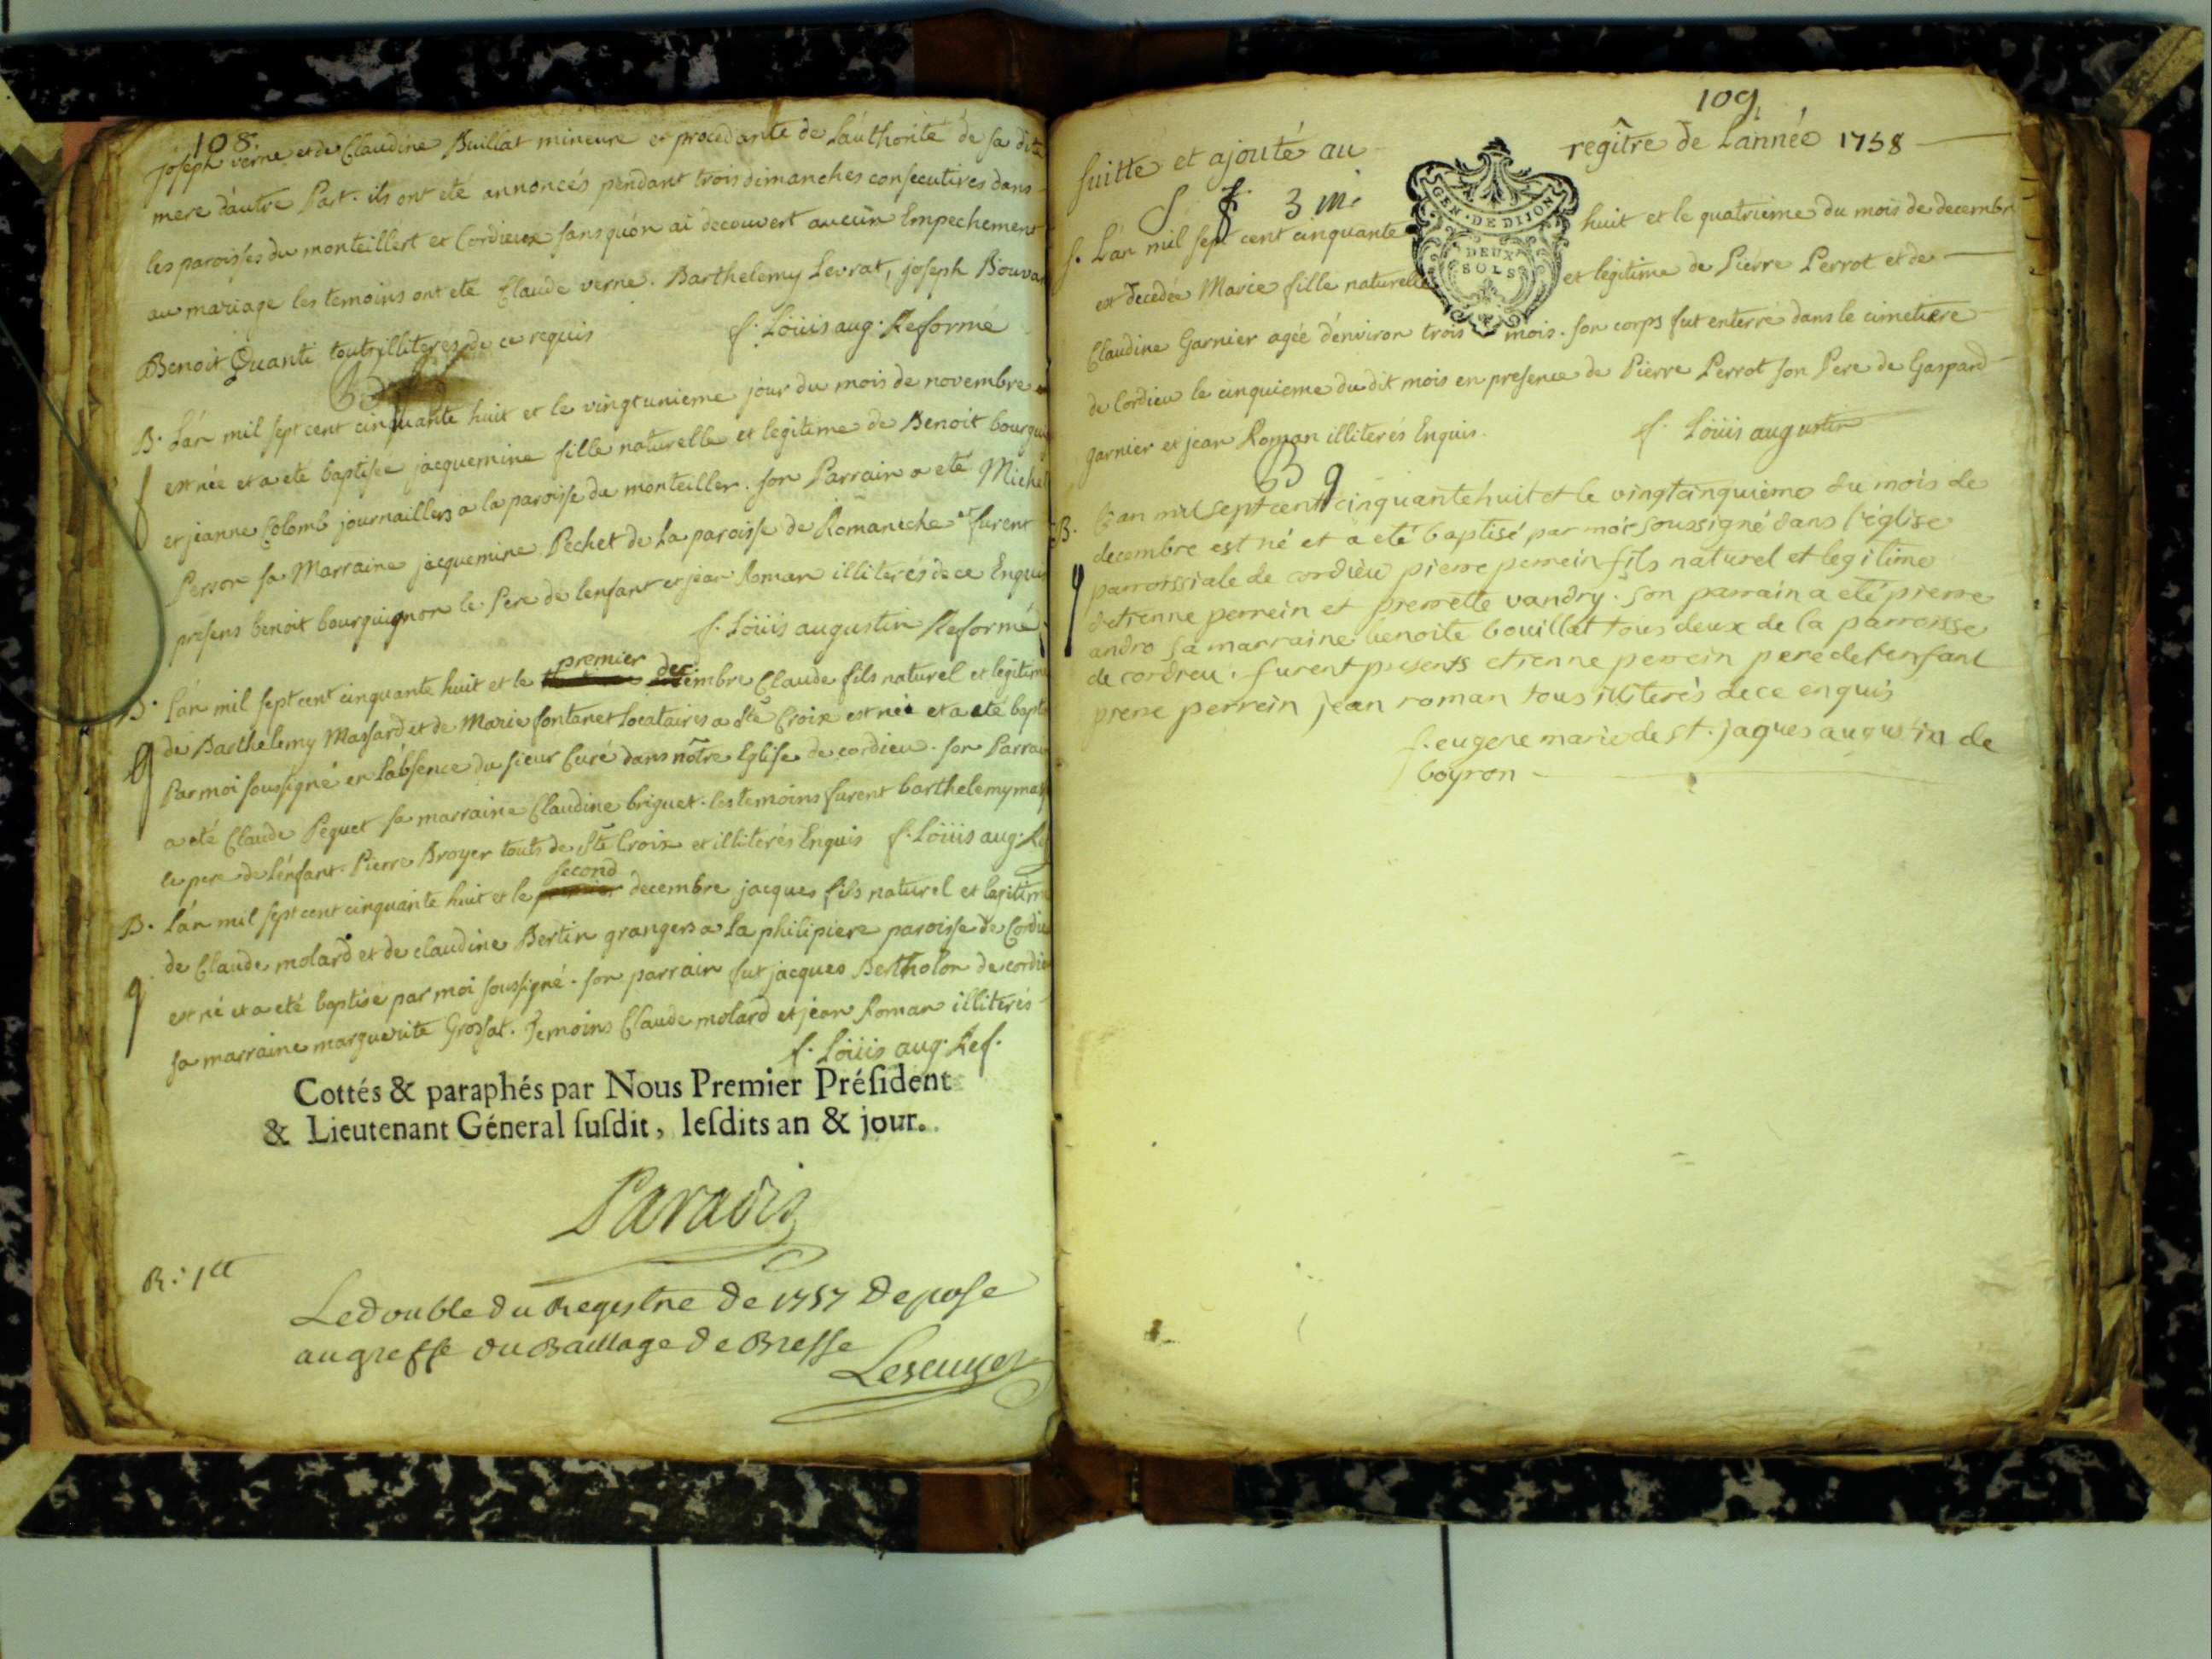 108.
joseph verne et de Claudine Buillat mineure et procedante de Láuthorité de sa dite
mere dáutre Part. ils ont eté annoncés pendant trois dimanches consecutives dans
les paroisses du monteillert et Cordieux sans quón ai decouvert aucun Empechement
au mariage les temoins ont eté Claude verne. Barthelemy Levrat, joseph Bouva
Benoit Quanti touts illiterés de ce requis f. Loüis aug. Reformé
B. Lán mil sept cent cinquante huit et le vingtunieme jour du mois de novembre
est née et a eté baptisée jacquemine fille naturelle et legitime de Benoit bourgui
et jeanne Colomb journaillers a la paroisse du monteiller. son Parrain a eté Michel
Person sa Marraine jacquemine Pechet de La paroisse de Romaneche furent
presens benoit bourguignon le Pere de lenfant et jean Roman illiterés de ce Enquis
f. Loüis augustin Reformé
B. Lán mil sept cent cinquante huit et le premier decembre Claude fils naturel et legitime
de Barthelemy Massard et de Marie fontanet Locataires a Ste Croix est né et a eté bapti
Par moi soussigné en Lábsence du sieur Curé dans nôtre Eglise de cordieu. son Parrain
a eté Claude Peguet sa marraine Claudine briguet. les temoins furent barthelemy mass
le pere de Lénfant. Pierre Broyer touts de Ste Croix et illiterés Enquis f. Loüis aug. Ref
B. Lán mil sept cent cinquante huit et le second decembre jacques fils naturel et legitime
de Claude molard et de claudine Bertin grangers a La philipiere paroisse de Cordieu
est né et a eté baptisé par moi soussigné. son parrain fut jacques Bertholon de cordieu
sa marraine marguerite Grossat. Temoins Claude molard et jean Roman illiterés
f. Loüis aug. Ref.
Cottés & paraphés par Nous Premier Préſident
& Lieutenant Géneral ſuſdit, leſdits an & jour.
Paradis
R. : 1tt
Le double du Registre de 1757 Depose
au greffe du Baillage de Bresse
109
suitte et ajouté au regître de Lannée 1758
GEN. DE DIJON
DEUX
SOLS
S 3 m.
s. Lan mil sept cent cinquante huit et le quatrieme du mois de decembre
est decedée Marie fille naturelle et legitime de Pierre Perrot et de
Claudine Garnier agée dénviron trois mois. son corps fut enterré dans le cimetiere
de Cordieu le cinquieme du dit mois en presence de Pierre Perrot son Pere de Gaspard
garnier et jean Roman illiterés Enquis. f. Loüis augustin
B 9
B. Lan mil sept cent cinquante huit et le vingtcinquieme du mois de
decembre est né et a eté baptisé par moi soussigné dans l'église
parroissiale de cordieu pierre perrein fils naturel et legitime
detienne perrein et pierrette vandry. son parrain a eté pierre
andro sa marraine benoite bouillat tous deux de la parroisse
de cordieu. furent presents etienne perrein pere de lenfant
pierre perrein jean roman tous illiterés de ce enquis
f. eugene marie de st. jaques augustin de
boyron